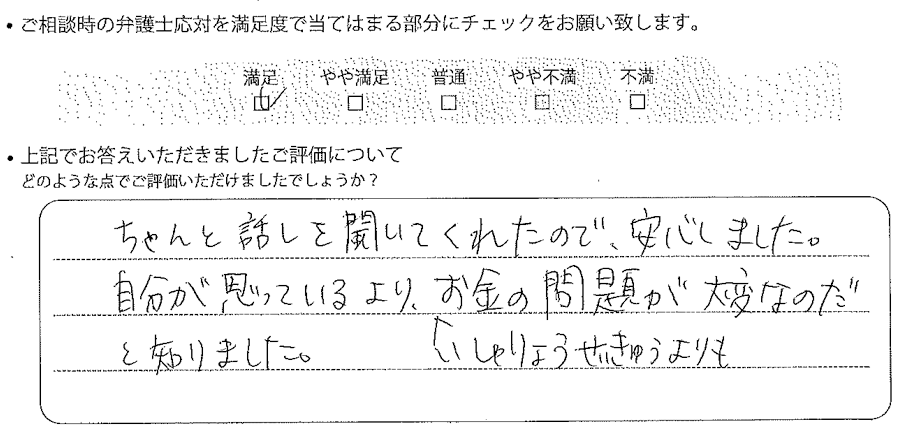 ・ご相談時の弁護士応対を満足度で当てはまる部分にチェックをお願い致します。
満足 やや満足 普通 やや不満 不満
・上記でお答えいただきましたご評価について
どのような点でご評価いただけましたでしょうか？
ちゃんと話しを聞いてくれたので、安心しました。
自分が思っているより、お金の問題が大変なのだ
と知りました。 いしゃりょうせいきゅうよりも